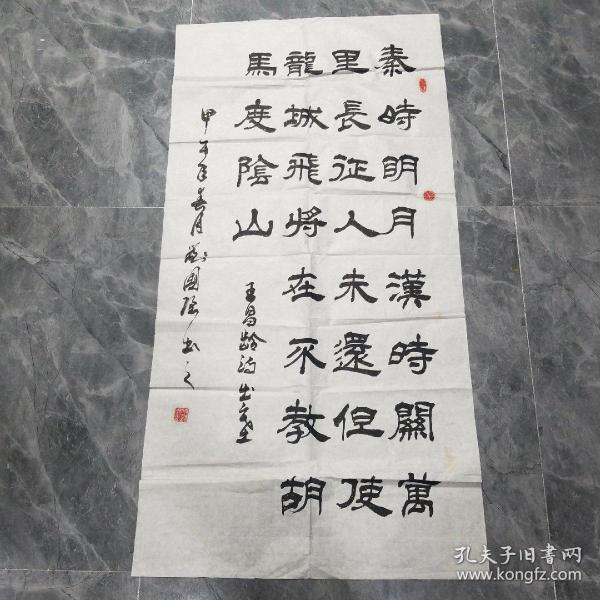 秦時明月漢時關萬
里長征人未還但使
龍城飛將在不教胡
馬度陰山
王昌齡詩出塞
甲午年春月
國強書之
孔夫子旧书网
www.kongfz.com